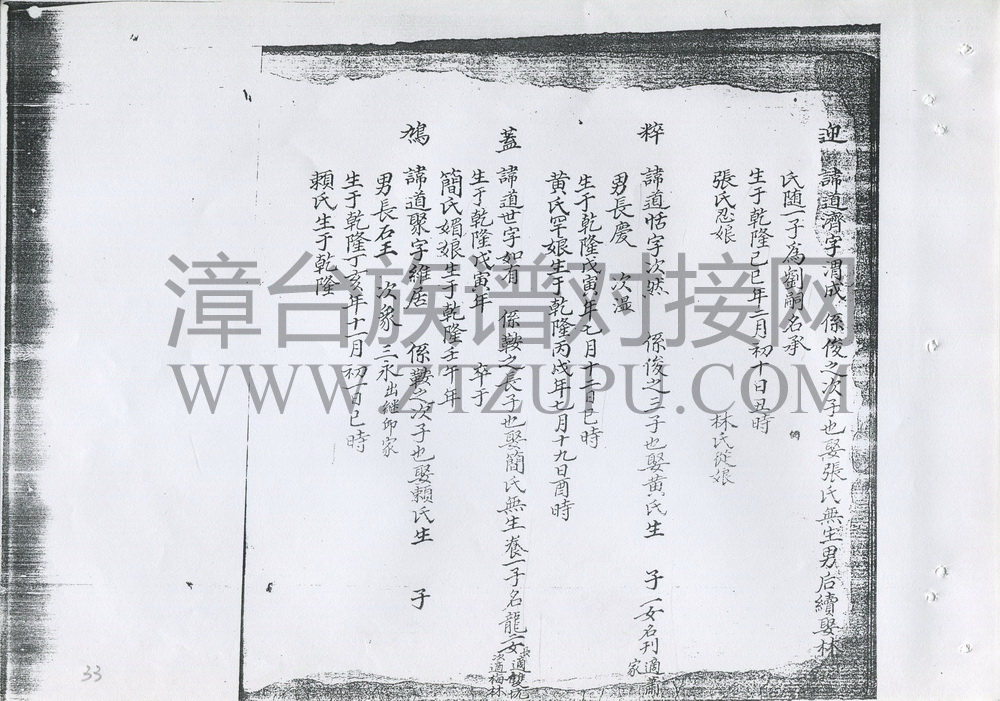 迎 諱道濟字渭成 係俊之次子也娶張氏無生男后續娶林
氏随一子為劉嗣名承
生于乾隆己巳年二月初十日丑時
張氏忍娘 林氏從娘
粹 諱道恬字次然 係俊之三子也娶黄氏生 子 一女名刊適蕭家
男長慶 次湿
生于乾隆戊寅年七月十二日巳時
黄氏罕娘生于乾隆丙戌年七月十九日酉時
蓋 諱道世字如有 係鞍之長子也娶簡氏無生养一子名龍二女長適雙坑次適梅林
生于乾隆戊寅年 卒于
簡氏媚娘生于乾隆壬午年
鳩 諱道聚字維居 係鞍之次子也娶賴氏生 子
男長石王 次象 三永出继邱家
生于乾隆丁亥年十一月初一日巳時
賴氏生于乾隆
漳台族谱对接网
WWW.ZTZUPU.COM
33